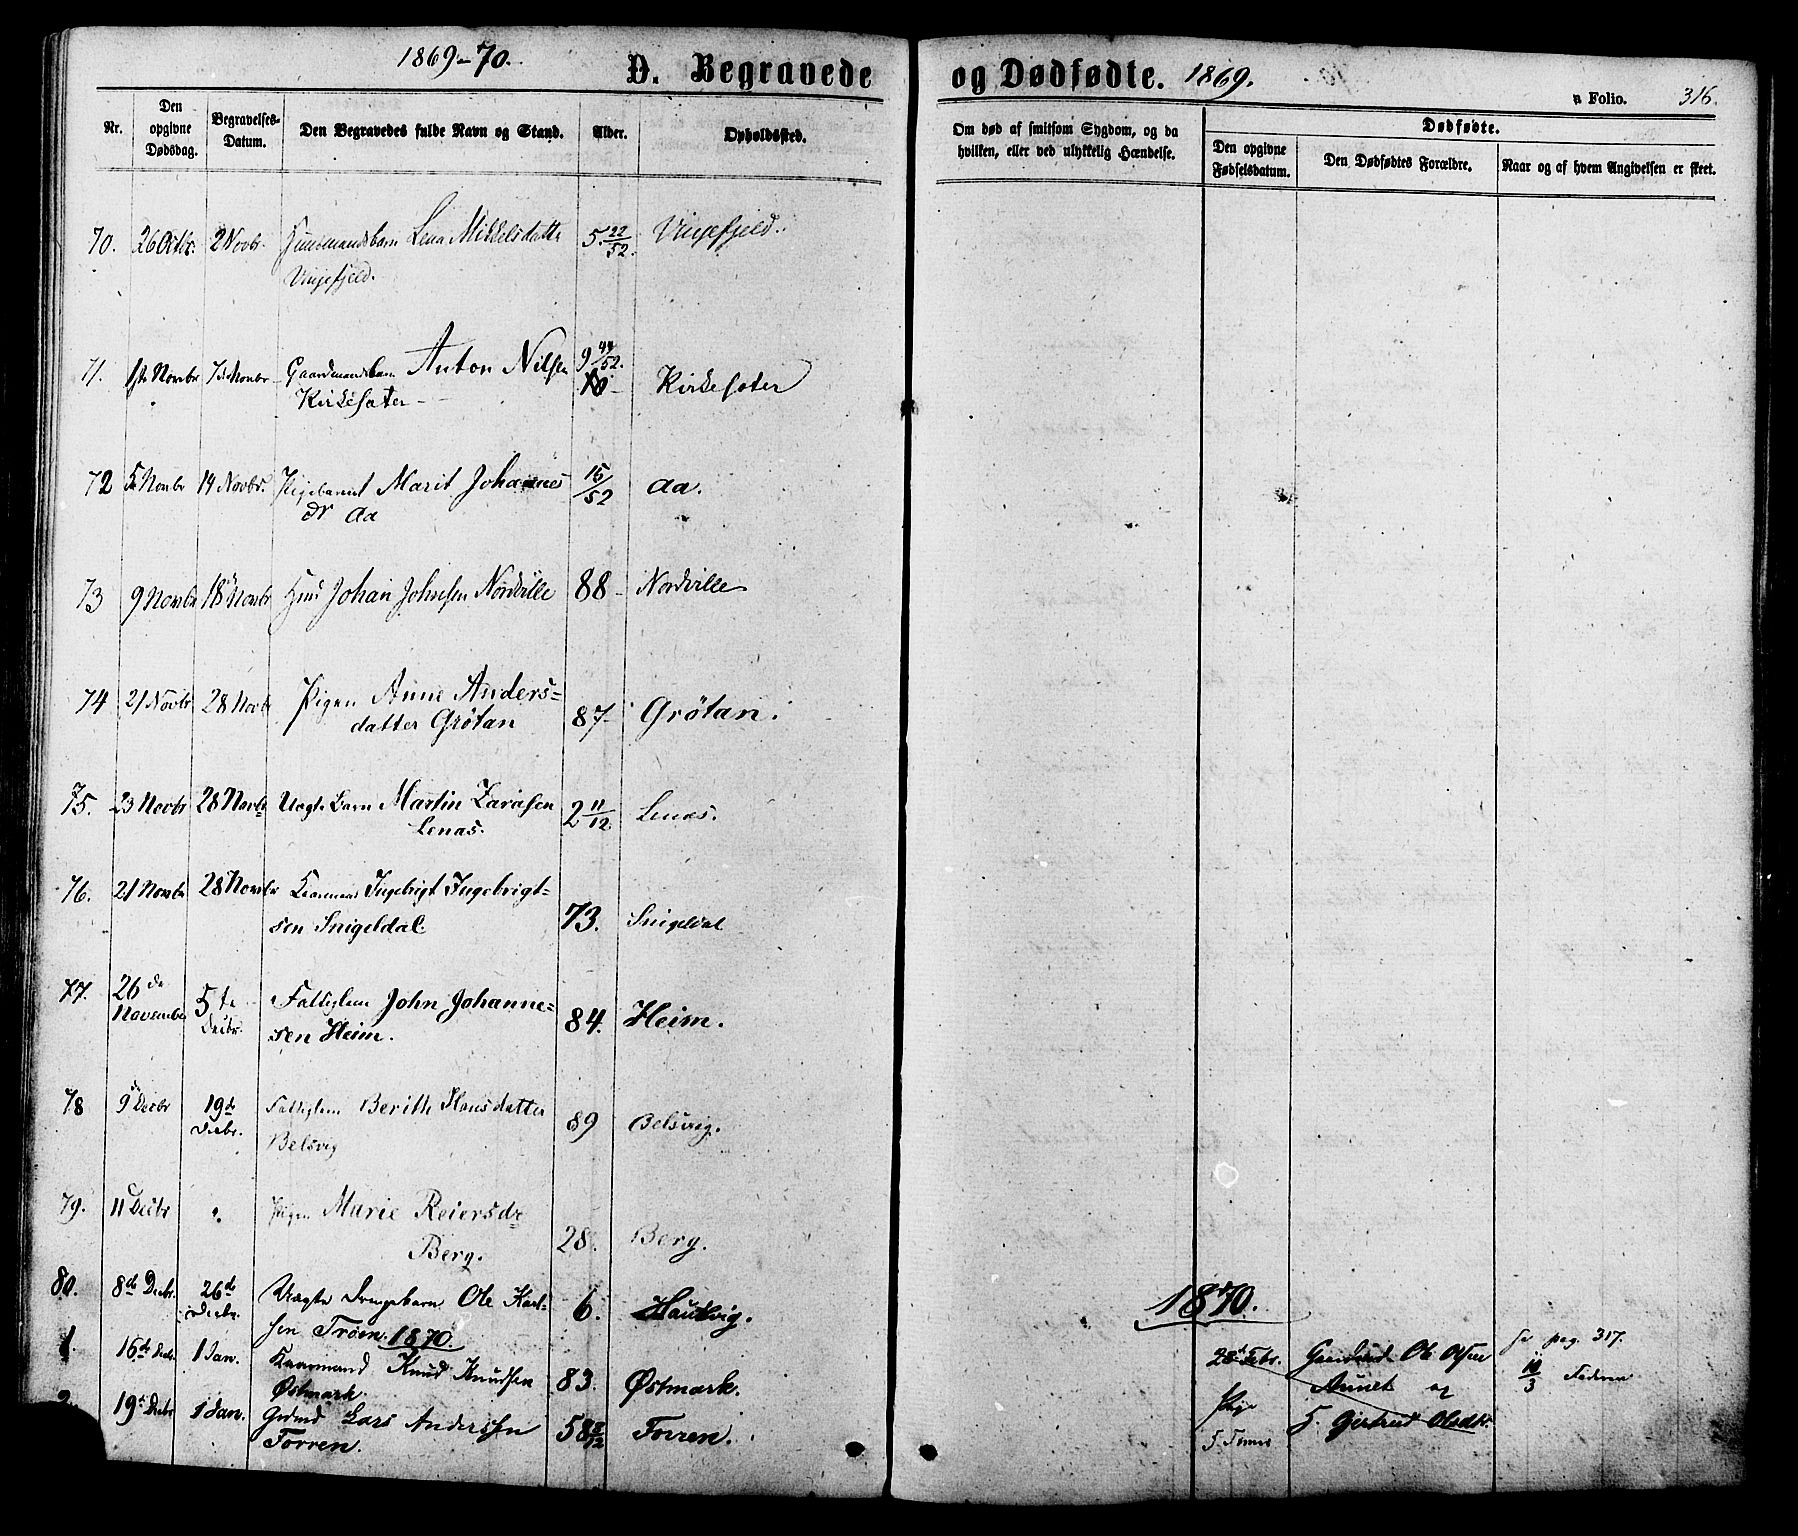 1869-70.
D. Begravede
og Dødfødte. 1869.
Folio. 316.
Nr.
Den opgivne Dødsdag.
Begravelses-Datum.
Den Begravedes fulde Navn og Stand.
Alder.
Opholdssted.
Om død af smitsom Sygdom, og da hvilken, eller ved ulykkelig Hændelse.
Dødfødte.
Den opgivne Fødselsdatum.
Den Dødfødtes Forældre.
Naar og af hvem Angivelsen er skeet.
70. 26 Octbr. 2 Novbr. Huusmandsbarn Lena Mikkelsdatte 5. 22/52. Vinjefjeld.
Vinjefjeld.
71. 1ste Novbr 7de Novbr Gaardmandsbarn Anton Nilsen 9 44/52. Kirkesæter
Kirkesæter
72 5 Novbr 14 Novbr. Pigebarnet Marit Johannes 15/52 Aa.
dr Aa
73 9 Novbr 18 Novbr Huus Johan Johnsen Nordville 88 Nordville
74 21 Novbr 28 Novbr Pigen Anne Anders= 87 Grötan.
datter Grötan
75. 23 Novbr 28 Novbr Uægte Barn Martin Larssen 2 11/12. Lenas.
Lenas.
76. 21 Novbr 28 Novbr Kaarmand Ingebrigt Ingebrigt= 73. Snigeldal
sen Snigeldal.
77. 26de November 5te Decbr. Fattiglem John Johanne= 84. Heim.
sen Heim.
78 9 Decbr 19de Decbr. Fattiglem Berith Hansdatter 89 Belsvig.
Belsvig
79. 11 Decbr Pigen Marie Reiersdr 28. Berg.
Berg.
80. 8de Decbr. 26de Decbr. Uægte Drengebarn Ole Karl= 6. Haukvig.
sen Tröen. 1870.
1. 16de Decbr. 1 Jan. Kaarmand Knud Knudsen 83. Østmark.
Østmark.
19de Decbr 1 Jan. Grdmd Lars Anderssen 58 Torren.
Torren.
1870.
28de Febr. Gaardmd Ole Olsen
Aunet og
Pige
H. Gjertrud Olsdtr.
se pag. 317.
10/3 Faderen